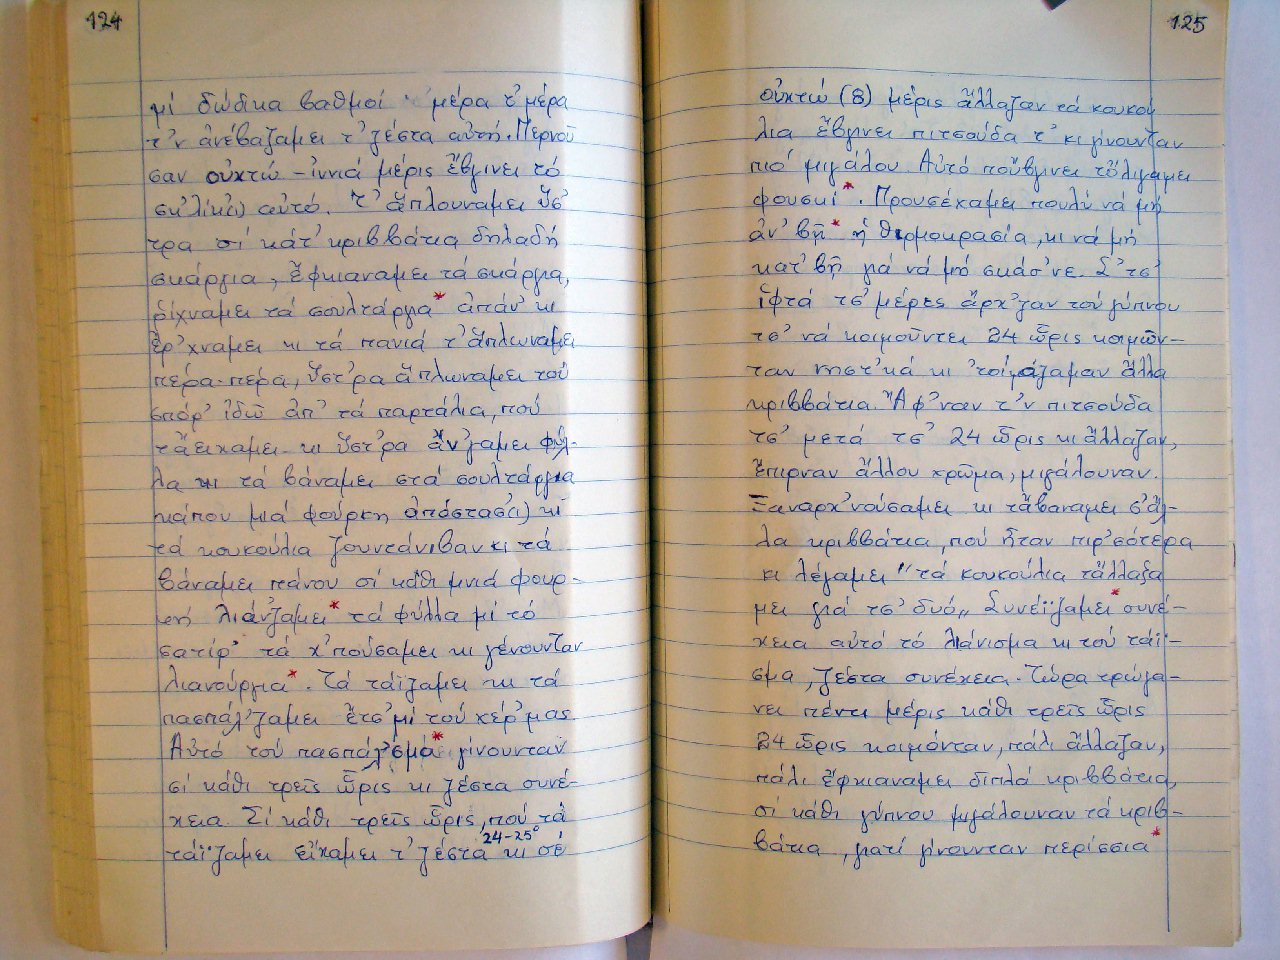 124
μί δώδικα βαθμοί μέρα τ' μέρα
τ'ν ἀνέβαζαμει τ' ζέστα αὐτή. Πέρνοῦ
σαν οὐχτώ - ἰννιά μέρις ἔβγινει τό
σκ'λίκ(ι) αὐτό. Τ' ἅπλουναμει ὕσ'
τρα σί κάτ' κριββάτια δηλαδή
σκάργια, ἔφκιαναμει τά σκάργια,
ρίχναμει τά σουλτάργια* ἀπάν' κι
ἔρ'χναμει κι τά πανιά τ' ἅπλωναμει
πέρα-πέρα, ὕστ'ρα ἅπλωναμει τού
σπόρ' ἰδῶ ἀπ' τά παρτάλια, πού
τἄειχαμει κι ὕστ'ρα ἄν'γαμει φύλ-
λα κι τά βάναμει στά σουλτάργια
κάπου μιά φούρκη ἀπόστασ(ι) κι
τά κουκούλια ζουντάνιβαν κι τά
βάναμει πάνου σί κάθι μνιά φουρ-
κή λιάνζαμει* τά φύλλα μί τό
σατίρ' τά χ'πούσαμει κι γένουνταν
λιανούργια*. Τά τάϊζαμει κι τά
πασπάλ'ζαμει ἔτσ' μί τού χέρ' μας
Αὐτό τού πασπάλ'σμα* γίνουνταν
σί κάθι τρεῖς ὧρις κι ζέστα συνέ-
χεια. Σί κάθι τρεῖς ὧρις, πού τά
24-25°
τάϊζαμει εἴχαμει τ' ζέστα κι σέ
125
οὐχτώ (8) μέρις ἄλλαζαν τά κουκού
λια ἔβγινει πιτσούδα τ' κι γίνουνταν
πιό μιγάλου. Αὐτό ποὔβγινει τὄλιγαμει
φουσκί*. Προυσέχαμει πουλύ νά μή
ἀν'βῆ* ἡ θιρμοκρασία, κι νά μή
κατ'βῆ γιά νά μή σκάσ'νε. Σ' τσ'
ἱφτά τσ' μέρες ἄρχ'ζαν τού γύπνου
τσ' νά κοιμοῦντει 24 ὧρις κοιμῶν-
ταν νηστ'κά κι 'τοίμαζαμαν ἄλλα
κριββάτια. Ἄφ'ναν τ'ν πιτσούδα
τσ' μετά τσ' 24 ὧρις κι ἄλλαζαν,
ἔπιρναν ἄλλου χρῶμα, μιγάλουναν.
Ξαναρχ'νούσαμει κι τἄβαναμει σ' ἄλ-
λα κριββάτια, πού ἦταν πιρ'σότερα
κι λέγαμει "τά κουκούλια τἄλλαξα
μει γιά τσ' δυό„ Συνέϊζαμει* συνέ-
χεια αὐτό τό λιάνισμα κι τού τάϊ-
σμα, ζέστα συνέχεια. Τώρα τρώγα-
νει πέντι μέρις κάθι τρεῖς ὧρις
24 ὧρις κοιμόνταν, πάλι ἄλλαζαν,
πάλι ἔφκιαναμει διπλά κριββάτια,
σί κάθι γύπνου μιγάλουναν τά κριβ-
βάτια, γιατί γίνουνταν περίσσια*